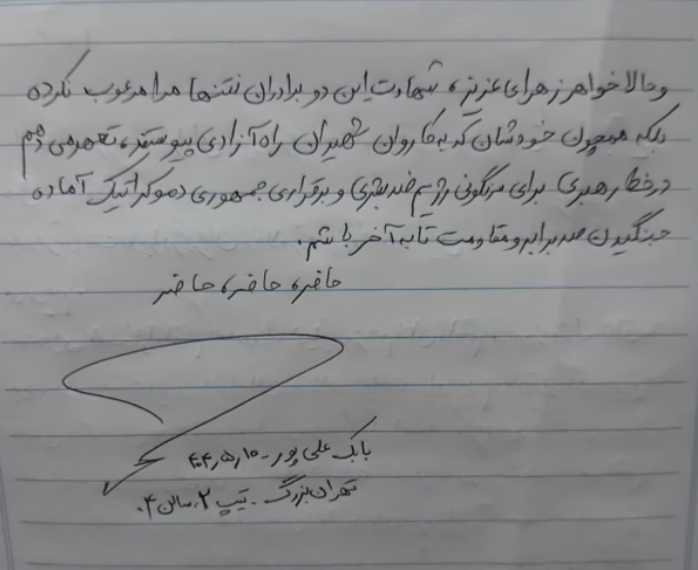 وحالا خواهر زهرای عزیز، شهادت این دو برادران نتنها مرا مرعوب نکرده
بلکه همچون خودشان که به کاروان شهیران راه آزادی پیوستند، تعهد می دهم
در خط رهبری برای سرنگونی رژیم ضد بشری و برقراری جمهوری دموکراتیک آماده
جنگیدن صد برابر و مقاومت تا به آخر باشم.
حاضر، حاضر، حاضر
بابک علی پور - ۴۰۴٫۵٫۱۰
تهران بزرگ - تیپ ۲. سالن ۴.